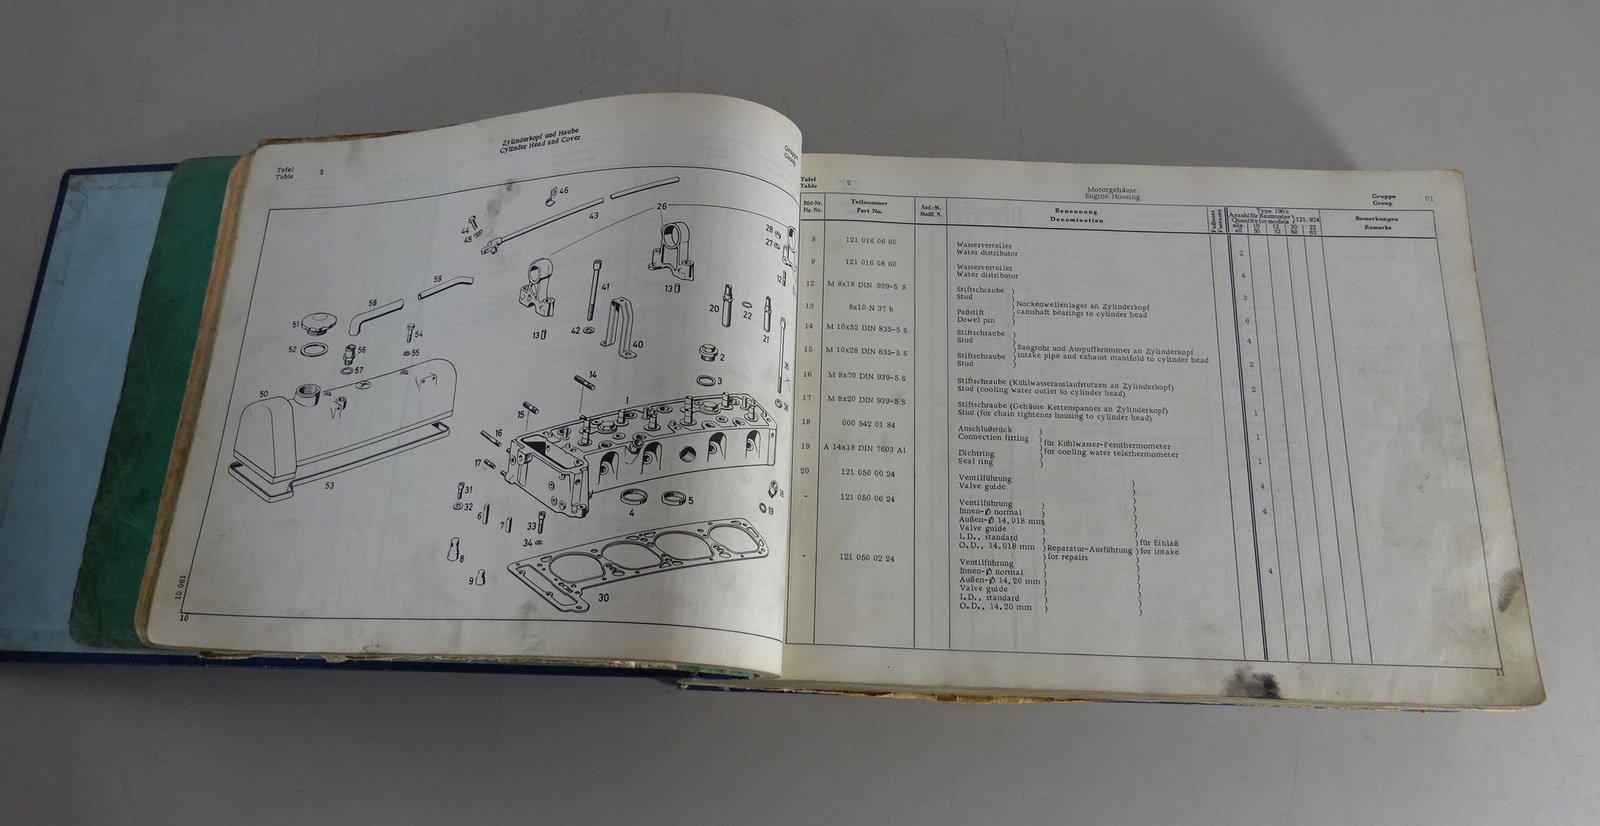 Zylinderkopf und Haube
Cylinder Head and Cover
Tafel
Table 2
Gruppe
Group
46
43
26
44
45
28
27
59
12
13
41
58
20
22
21
51
54
42
13
40
52
56
55
2
57
3
14
50
1
15
16
17
53
31
32
6
7
33
34
4
5
18
19
8
9
30
10 061
10
Tafel
Table 2
Motorgehäuse
Engine Housing
Gruppe
Group 01
Bild-Nr.
Fig. No.
Teilnummer
Part No.
Änd.-M.
Modif. N.
Benennung
Denomination
Fußnote
Footnote
Type 190 c
Anzahl für Baumuster
Quantity for models
121.924
alle
all
10
50
12
52
20
60
22
62
Bemerkungen
Remarks
8 121 016 06 60 Wasserverteiler 2
Water distributor
9 121 016 08 60 Wasserverteiler 4
Water distributor
12 M 8x18 DIN 939-5 S Stiftschraube 3
Stud
Nockenwellenlager an Zylinderkopf
camshaft bearings to cylinder head
13 8x10 N 37 b Paßstift 6
Dowel pin
14 M 10x52 DIN 835-5 S Stiftschraube 4
Stud
Saugrohr und Auspuffkrümmer an Zylinderkopf
intake pipe and exhaust manifold to cylinder head
15 M 10x28 DIN 835-5 S Stiftschraube 2
Stud
16 M 8x70 DIN 939-5 S Stiftschraube (Kühlwasserauslaufstutzen an Zylinderkopf) 2
Stud (cooling water outlet to cylinder head)
17 M 8x20 DIN 939-5 S Stiftschraube (Gehäuse Kettenspanner an Zylinderkopf) 1
Stud (for chain tightener housing to cylinder head)
18 000 542 01 84 Anschlußstück 1
Connection fitting
für Kühlwasser-Fernthermometer
for cooling water telethermometer
19 A 14x18 DIN 7603 Al Dichtring 1
Seal ring
20 121 050 00 24 Ventilführung 4
Valve guide
- 121 050 06 24 Ventilführung 4
Innen-Ø normal
Außen-Ø 14,018 mm
Valve guide
I.D., standard
O.D., 14.018 mm
Reparatur-Ausführung
for repairs
für Einlaß
for intake
- 121 050 02 24 Ventilführung 4
Innen-Ø normal
Außen-Ø 14,20 mm
Valve guide
I.D., standard
O.D., 14.20 mm
11